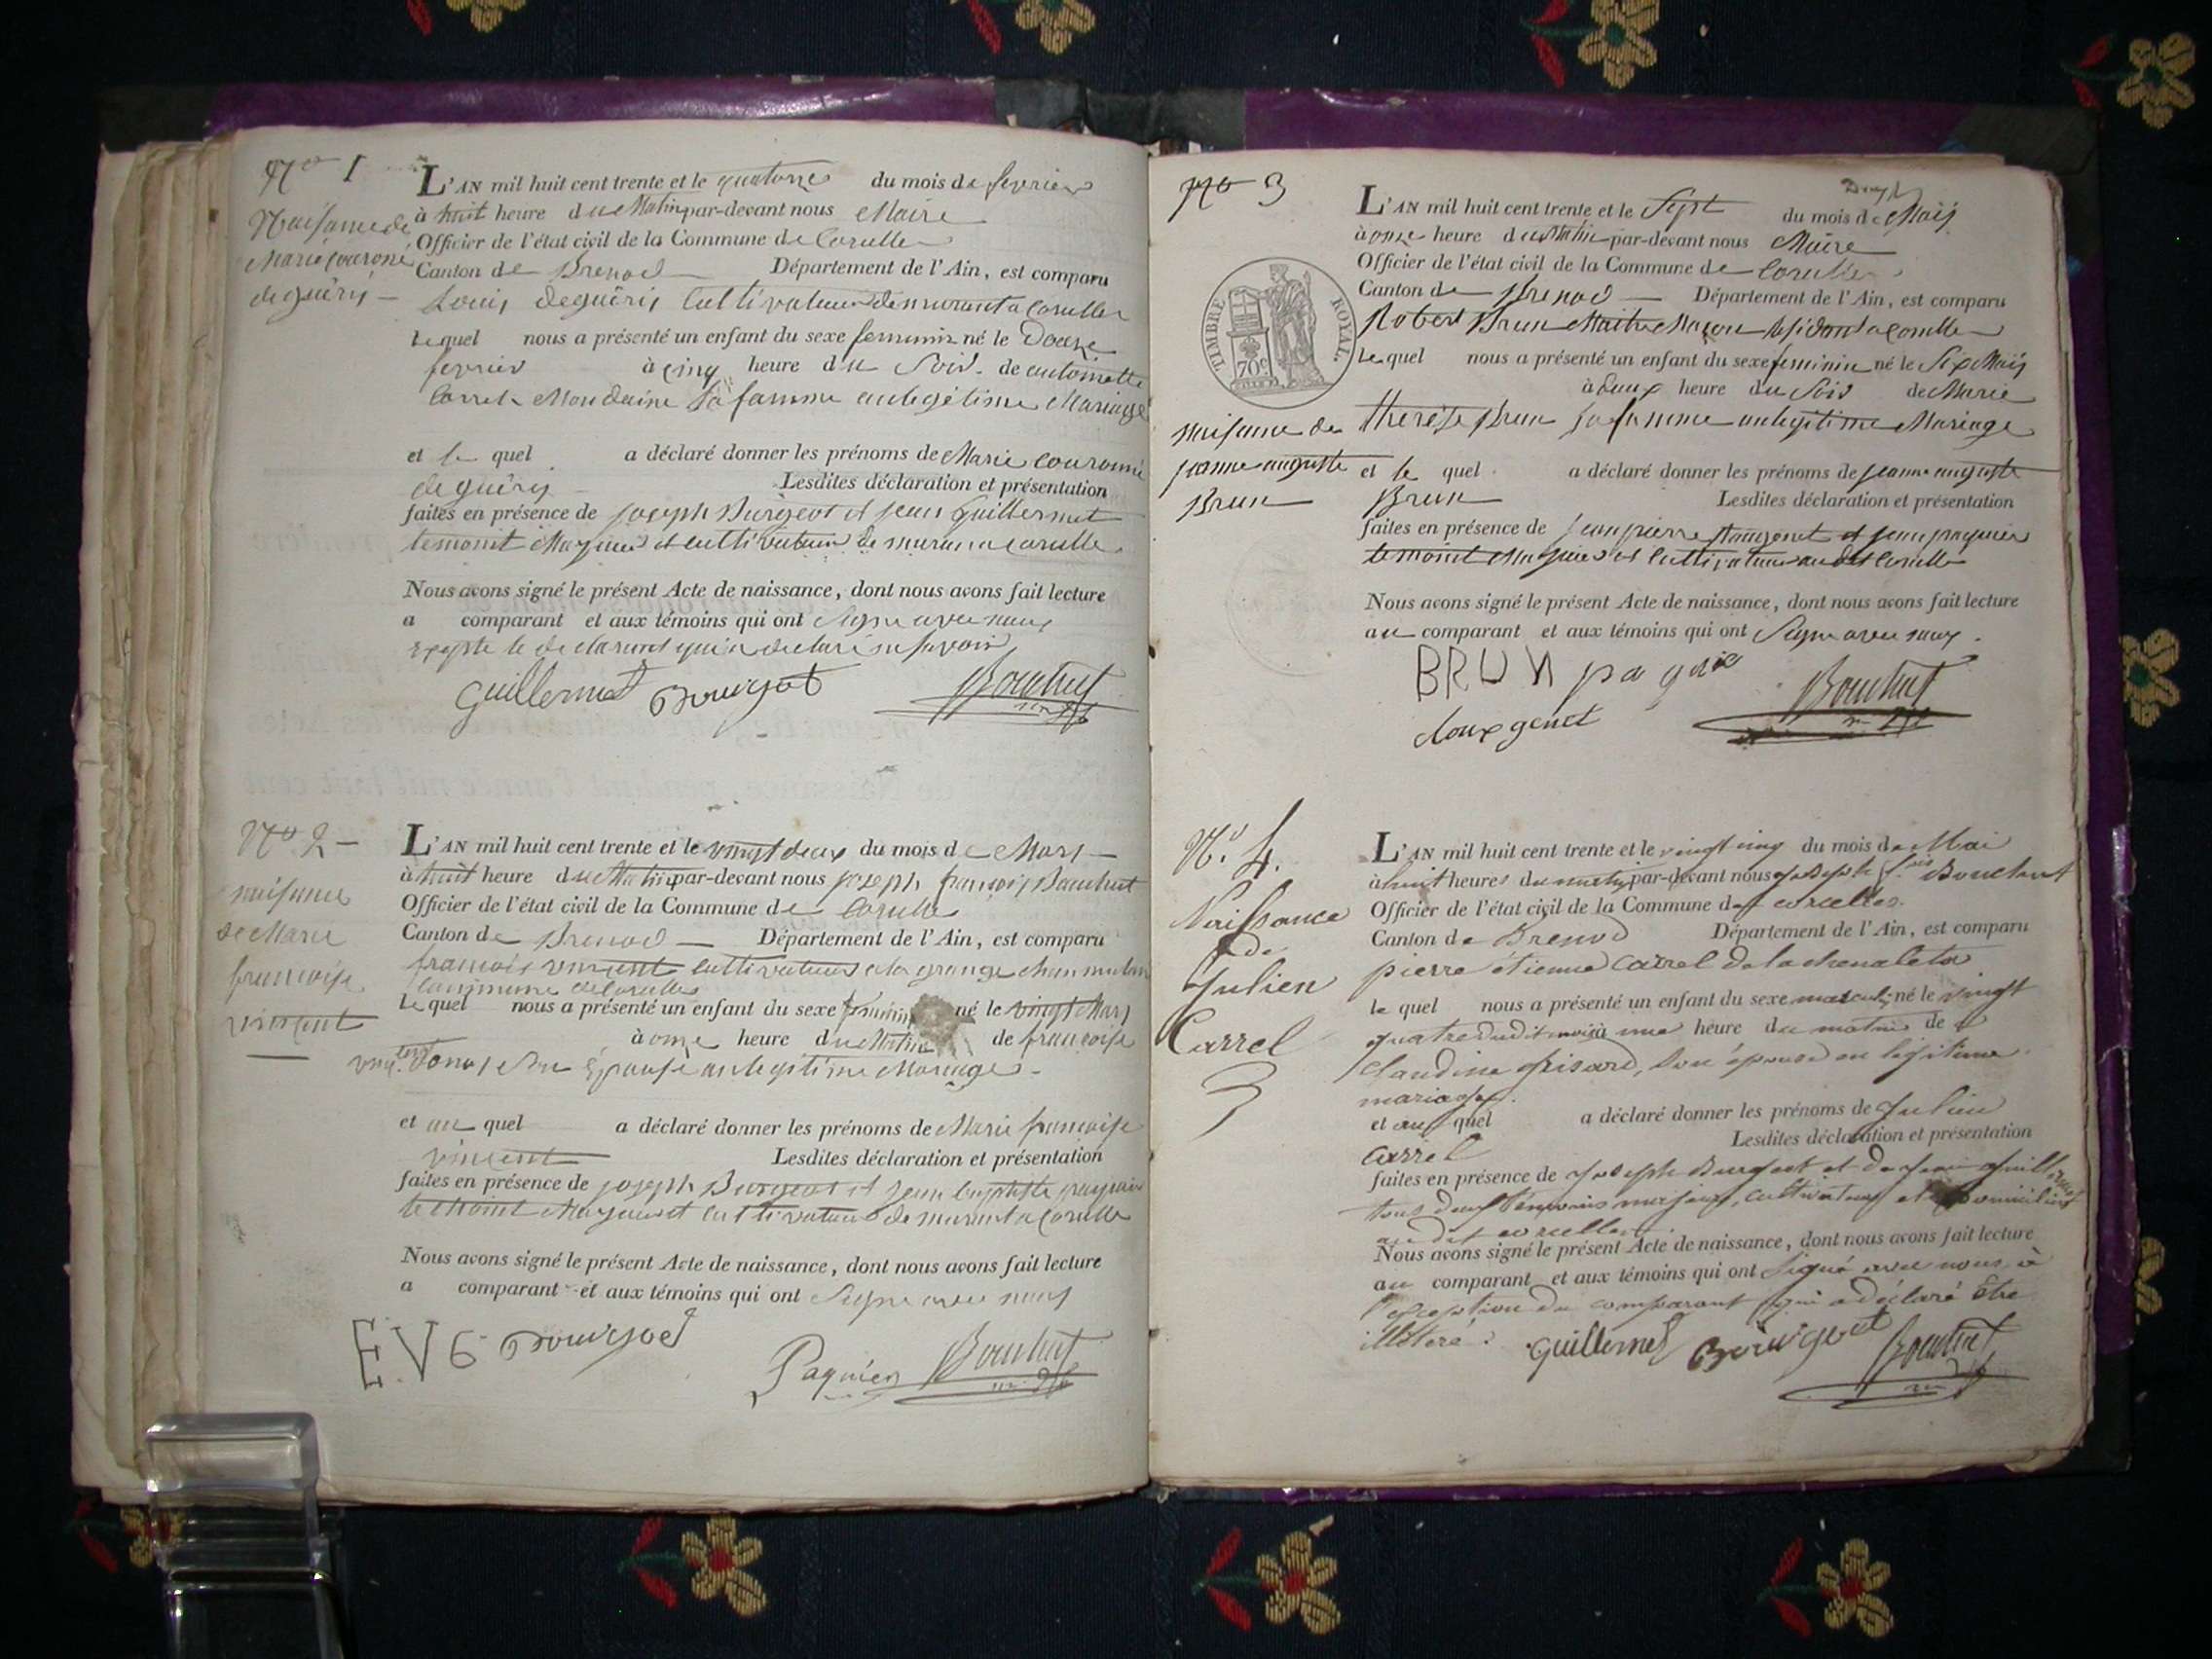 No 1
Naisance de
Marie couronné
deguéris
L'AN mil huit cent trente et le quatorze du mois de fevrier
à huit heure du Matin par-devant nous Maire
Officier de l'état civil de la Commune de Corcelle
Canton de Brenod Département de l'Ain, est comparu
Louis deguéris Cultivateur demeurant a Corcelle
Lequel nous a présenté un enfant du sexe feminin né le Douze
fevrier à cinq heure du Soir de antoinette
Carrel Mondaine Sa famme en legitime Mariage
et le quel a déclaré donner les prénoms de Marie couronné
deguéris Lesdites déclaration et présentation
faites en présence de joseph Burgeot et jean guillermet
temoint Majeur et cultivateur de murant a Corcelle
Nous avons signé le présent Acte de naissance, dont nous avons fait lecture
a comparant et aux témoins qui ont Signe avec nous
exepte le declarant qui a declaré ne savoir
guillermet Bourgot Bouchut
No 2
naisance
de Marie
francoise
vincent
L'AN mil huit cent trente et le vingt deux du mois de Mars
à huit heure du Matin par-devant nous joseph françois Bouchut
Officier de l'état civil de la Commune de Corcelle
Canton de Brenod Département de l'Ain, est comparu
francois vincent cultivateur a la grange
Commune de Corcelle
Le quel nous a présenté un enfant du sexe feminin né le vingt Mars
à onze heure du Matin de francoise
Son Epouse en legitime Mariage
et au quel a déclaré donner les prénoms de Marie francoise
vincent Lesdites déclaration et présentation
faites en présence de joseph Burgeot et jean baptiste paquier
temoint Majeur et cultivateur de murant a Corcelle
Nous avons signé le présent Acte de naissance, dont nous avons fait lecture
a comparant et aux témoins qui ont Signe avec nous
E.V 6 Bourgot
Paquier Bouchut
No 3
TIMBRE ROYAL.
70c
naisance de
jeanne auguste
Brun
L'AN mil huit cent trente et le Sept du mois de Maij
à onze heure du Matin par-devant nous Maire
Officier de l'état civil de la Commune de Corcelle
Canton de Brenod Département de l'Ain, est comparu
Robert Brun Maitre Maçon Residant a Corcelle
Le quel nous a présenté un enfant du sexe feminin né le Six Maij
à deux heure du Soir de Marie
therése Brun sa famme en legitime Mariage
et le quel a déclaré donner les prénoms de jeanne auguste
Brun Lesdites déclaration et présentation
faites en présence de jean pierre et jean paquier
temoint Majeur et Cultivateur au dit Corcelle
Nous avons signé le présent Acte de naissance, dont nous avons fait lecture
au comparant et aux témoins qui ont Signe avec nous.
BRUN paquie
Bouchut
douxgenet
No. 4.
Naissance
de
Julien
Carrel
3
L'AN mil huit cent trente et le vingt cinq du mois de Mai
à huit heures du matin par-devant nous joseph f.ois Bouchut
Officier de l'état civil de la Commune de corcelles
Canton de Brenod Département de l'Ain, est comparu
pierre étienne Carrel de la chenaleta
le quel nous a présenté un enfant du sexe masculin né le vingt
quatre dudit mois à une heure du matin de
Claudine Grisard, Son épouse en légitime
mariage.
et au quel a déclaré donner les prénoms de Julien
Carrel Lesdites déclaration et présentation
faites en présence de Joseph Burgeot et de Jean Guillermet
tous deux témoins majeurs, cultivateurs et domiciliés
au dit corcelles.
Nous avons signé le présent Acte de naissance, dont nous avons fait lecture
au comparant et aux témoins qui ont Signé avec nous, à
l'exception du comparant qui a déclaré être
illétéré. guillermet Bourgeot Bouchut